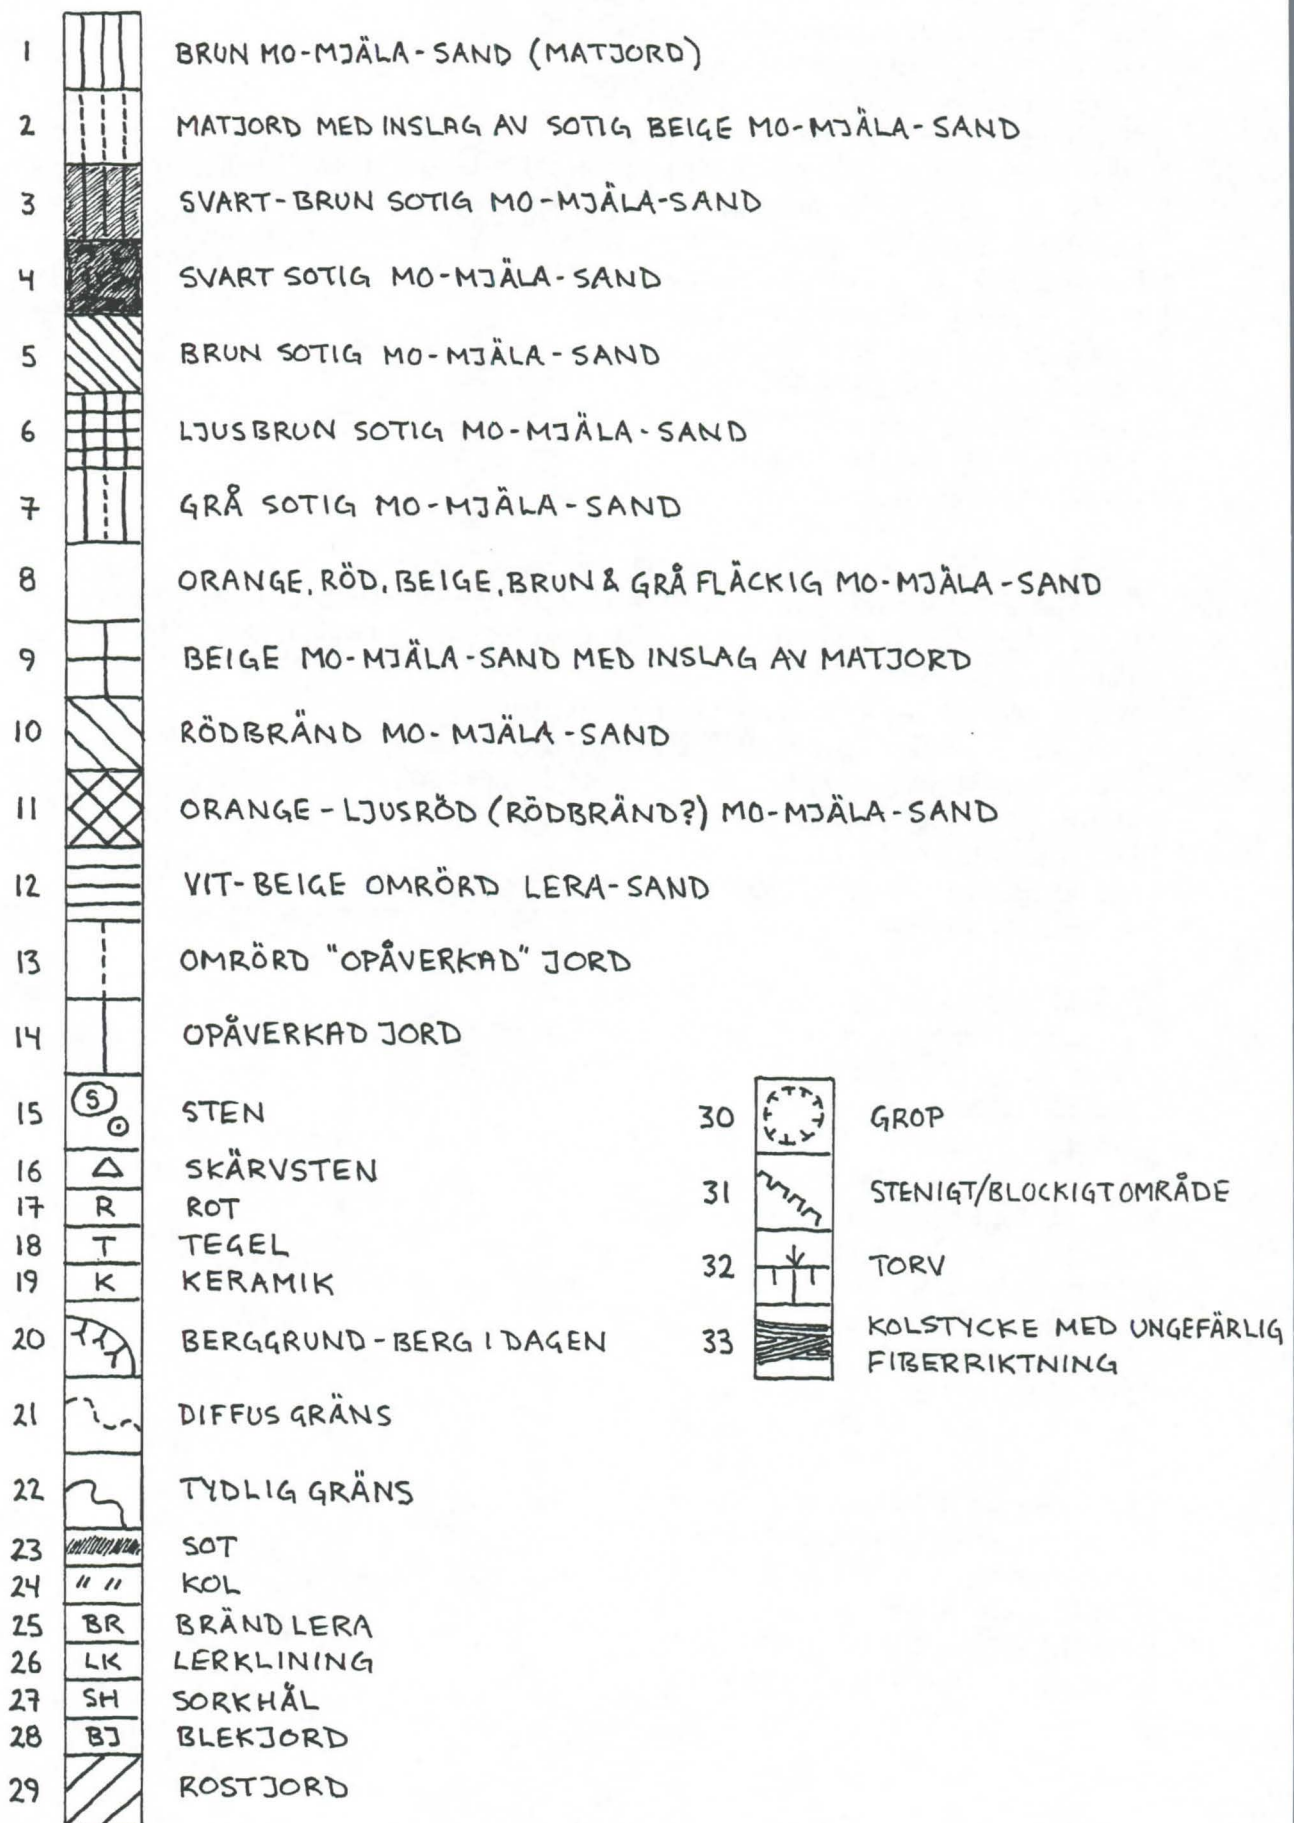 1 BRUN MO-MJÄLA-SAND (MATJORD)
2 MATJORD MED INSLAG AV SOTIG BEIGE MO-MJÄLA-SAND
3 SVART-BRUN SOTIG MO-MJÄLA-SAND
4 SVART SOTIG MO-MJÄLA-SAND
5 BRUN SOTIG MO-MJÄLA-SAND
6 LJUSBRUN SOTIG MO-MJÄLA-SAND
7 GRÅ SOTIG MO-MJÄLA-SAND
8 ORANGE, RÖD, BEIGE, BRUN & GRÅ FLÄCKIG MO-MJÄLA-SAND
9 BEIGE MO-MJÄLA-SAND MED INSLAG AV MATJORD
10 RÖDBRÄND MO-MJÄLA-SAND
11 ORANGE-LJUSRÖD (RÖDBRÄND?) MO-MJÄLA-SAND
12 VIT-BEIGE OMRÖRD LERA-SAND
13 OMRÖRD "OPÅVERKAD" JORD
14 OPÅVERKAD JORD
15 S STEN
16 SKÄRVSTEN
17 R ROT
18 T TEGEL
19 K KERAMIK
20 BERGGRUND-BERG I DAGEN
21 DIFFUS GRÄNS
22 TYDLIG GRÄNS
23 SOT
24 KOL
25 BR BRÄND LERA
26 LK LERKLINING
27 SH SORKHÅL
28 BJ BLEKJORD
29 ROSTJORD
30 GROP
31 STENIGT/BLOCKIGT OMRÅDE
32 TORV
33 KOLSTYCKE MED UNGEFÄRLIG
FIBERRIKTNING